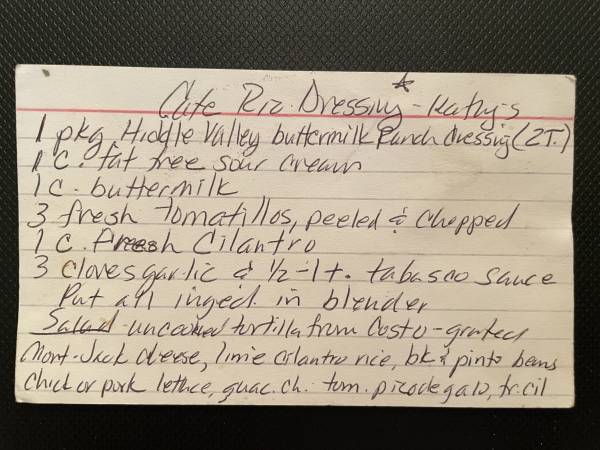 Cafe Rio Dressing - Kathy's
1 pkg Hiddle Valley buttermilk Ranch dressing (2T.)
1 c. fat free sour cream
1 c. buttermilk
3 fresh tomatillos, peeled & chopped
1 c. fresh Cilantro
3 cloves garlic & 1/2-1 t. tabasco sauce
Put all inged. in blender
Salad - uncooked tortilla from Costo - grated
Mont-Jack cheese, lime cilantro rice, bk & pinto beans
Chick or pork lettuce, guac. ch. tom. picodegalo, fr. cil